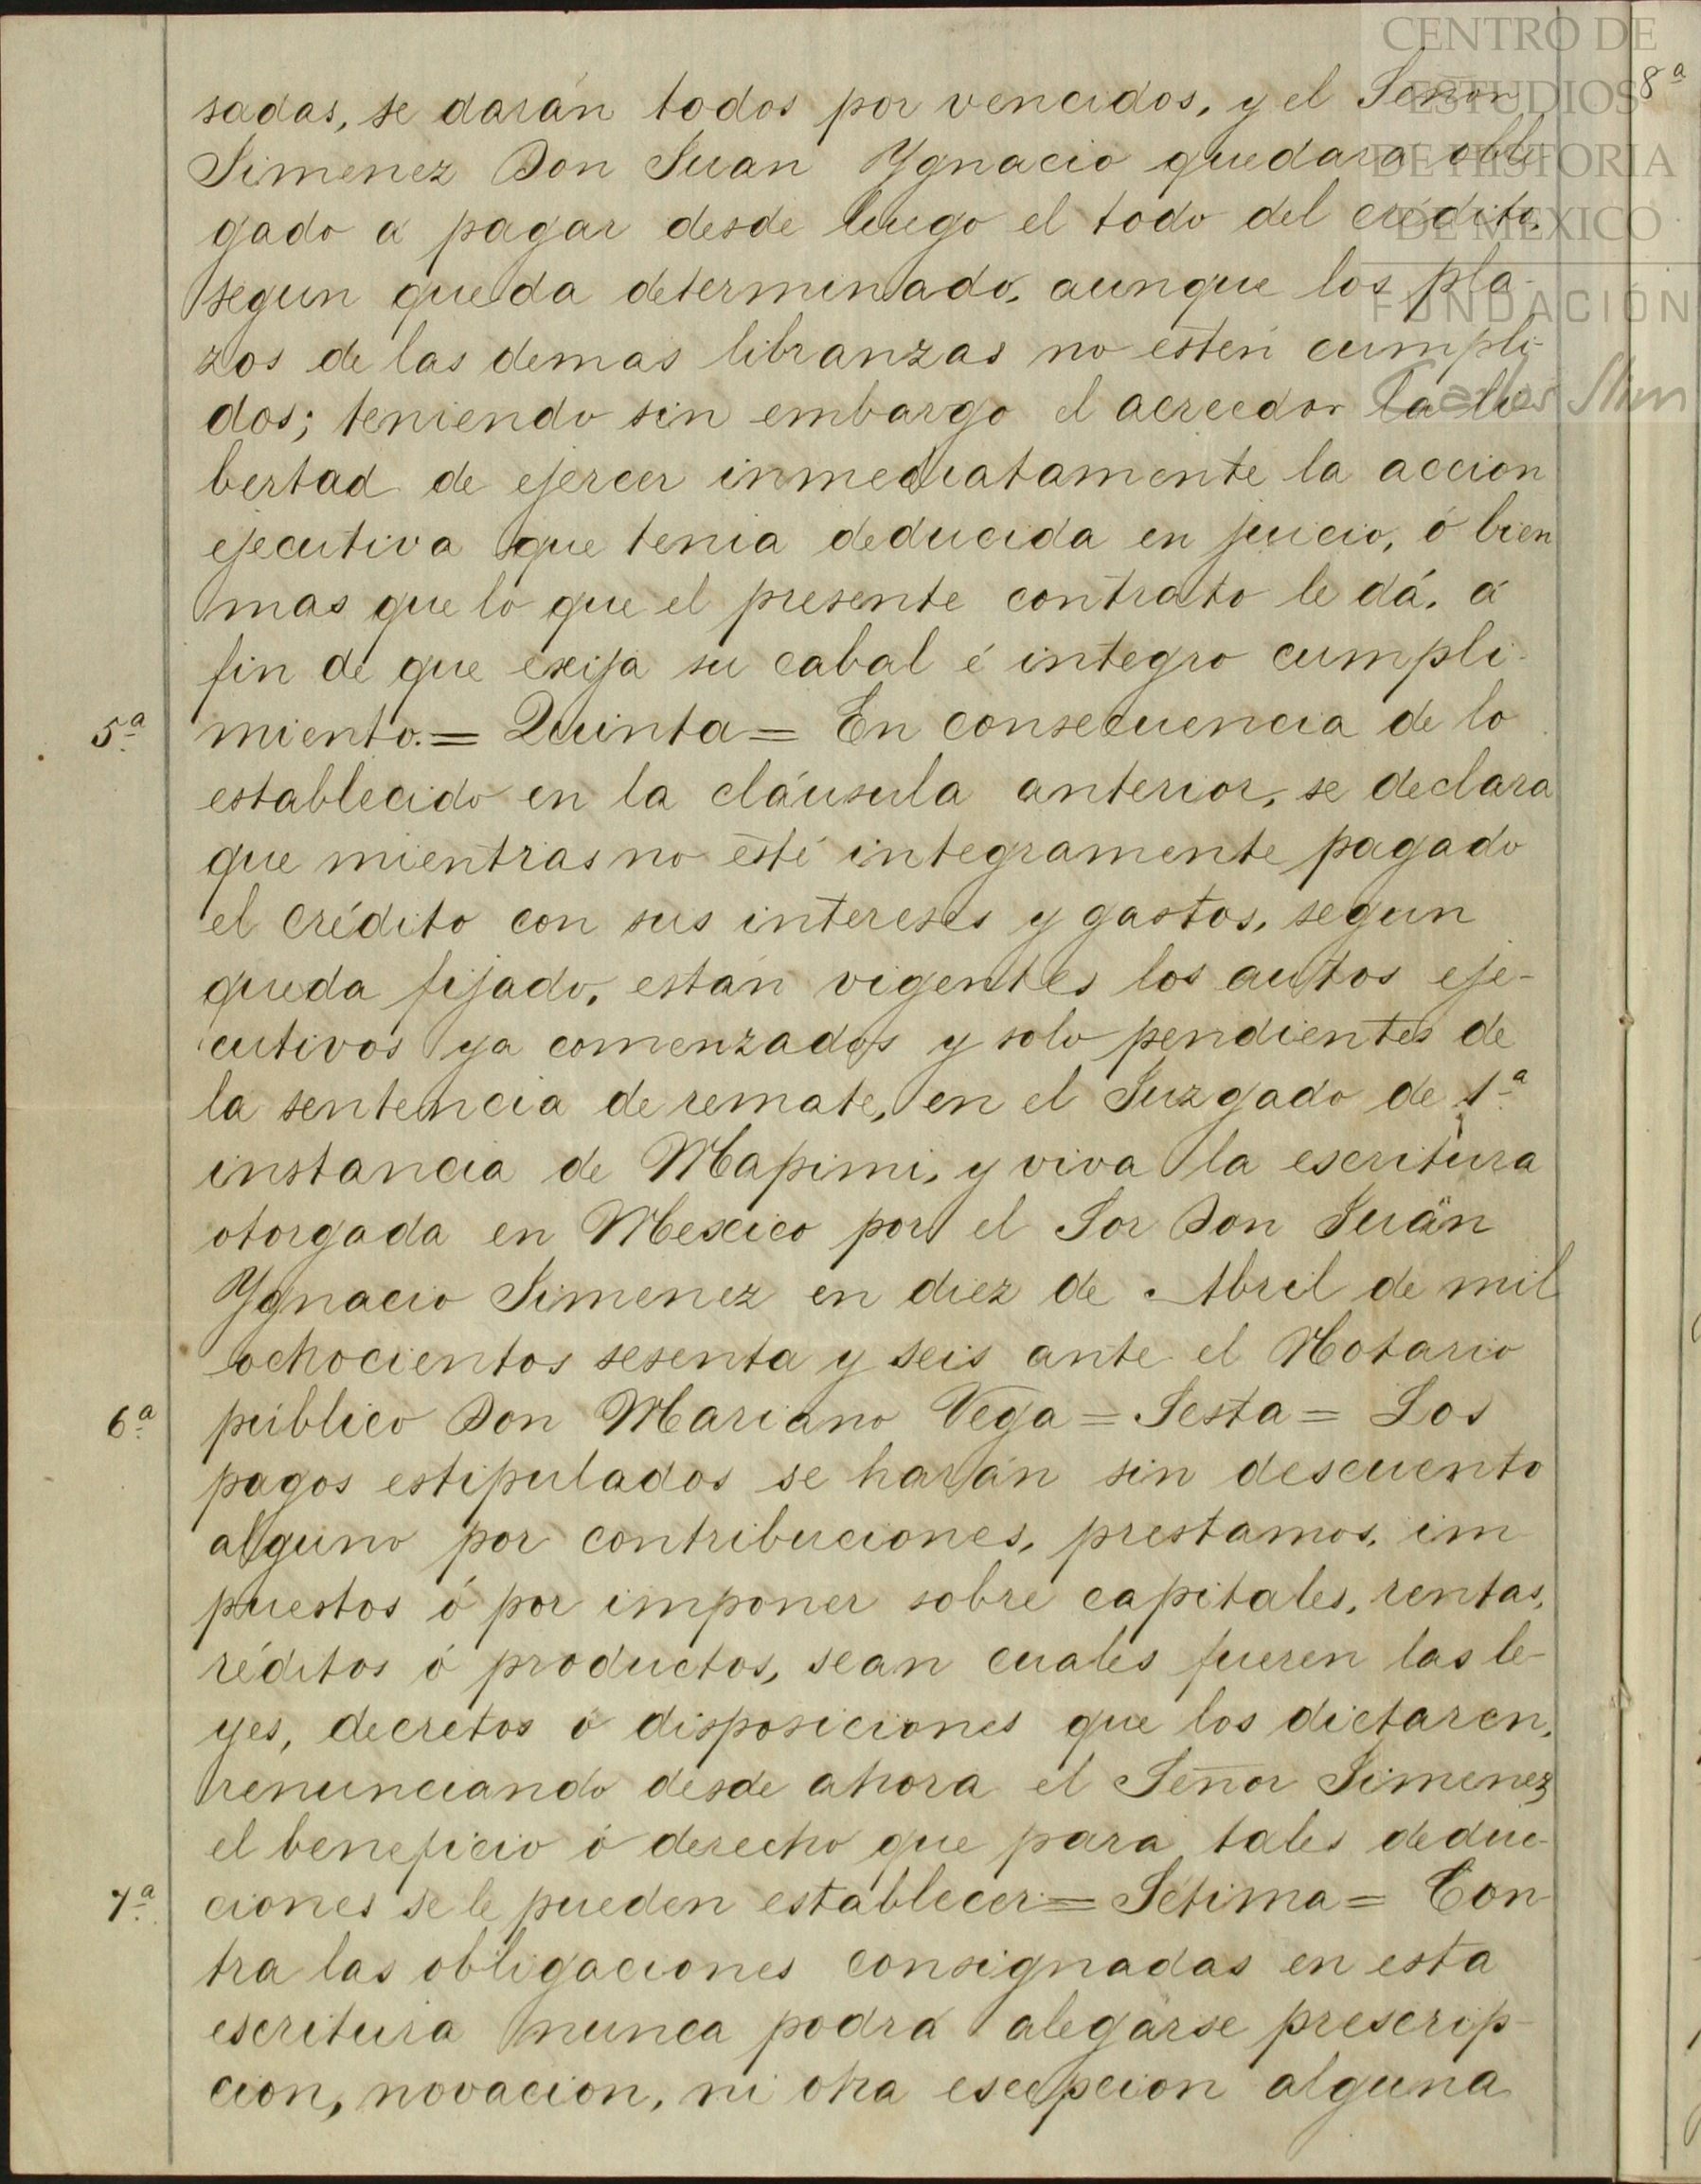 CENTRO DE
ESTUDIOS
DE HISTORIA
DE MEXICO
FUNDACIÓN
Carlos Slim
8ª
sadas, se darán todos por vencidos, y el Señor
Jimenez Don Juan Ygnacio quedara obli-
gado a pagar desde luego el todo del crédito,
segun queda determinado, aunque los pla-
zos de las demas libranzas no estén cumpli-
dos; teniendo sin embargo el acreedor la li-
bertad de ejercer inmediatamente la accion
ejecutiva que tenia deducida en juicio, ó bien
mas que lo que el presente contrato le dá, a
fin de que exija su cabal é integro cumpli-
5ª miento.= Quinta= En consecuencia de lo
establecido en la cláusula anterior, se declara
que mientras no esté integramente pagado
el crédito con sus intereses y gastos, segun
queda fijado, están vigentes los autos eje-
cutivos ya comenzados y solo pendientes de
la sentencia de remate, en el Juzgado de 1ª
instancia de Mapimi, y viva la escritura
otorgada en Mexico por el Sor Don Juan
Ygnacio Jimenez en diez de Abril de mil
ochocientos sesenta y seis ante el Notario
6ª público Don Mariano Vega= Sesta= Los
pagos estipulados se harán sin descuento
alguno por contribuciones, prestamos, im
puestos ó por imponer sobre capitales, rentas,
réditos ó productos, sean cuales fueren las le-
yes, decretos ó disposiciones que los dictaren,
renunciando desde ahora el Señor Jimenez
el beneficio ó derecho que para tales deduc-
7ª ciones se le pueden establecer= Sétima= Con
tra las obligaciones consignadas en esta
escritura nunca podrá alegarse prescrip-
cion, novacion, ni otra escepcion alguna